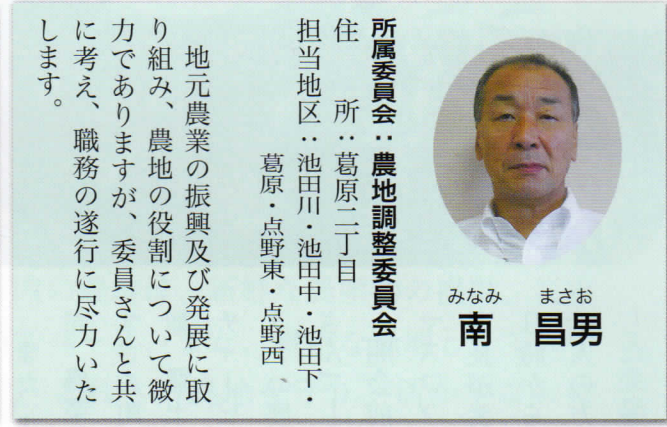 みなみ　まさお
南　昌男
所属委員会：農地調整委員会
住　　所：葛原二丁目
担当地区：池田川・池田中・池田下・
葛原・点野東・点野西
地元農業の振興及び発展に取
り組み、農地の役割について微
力でありますが、委員さんと共
に考え、職務の遂行に尽力いた
します。